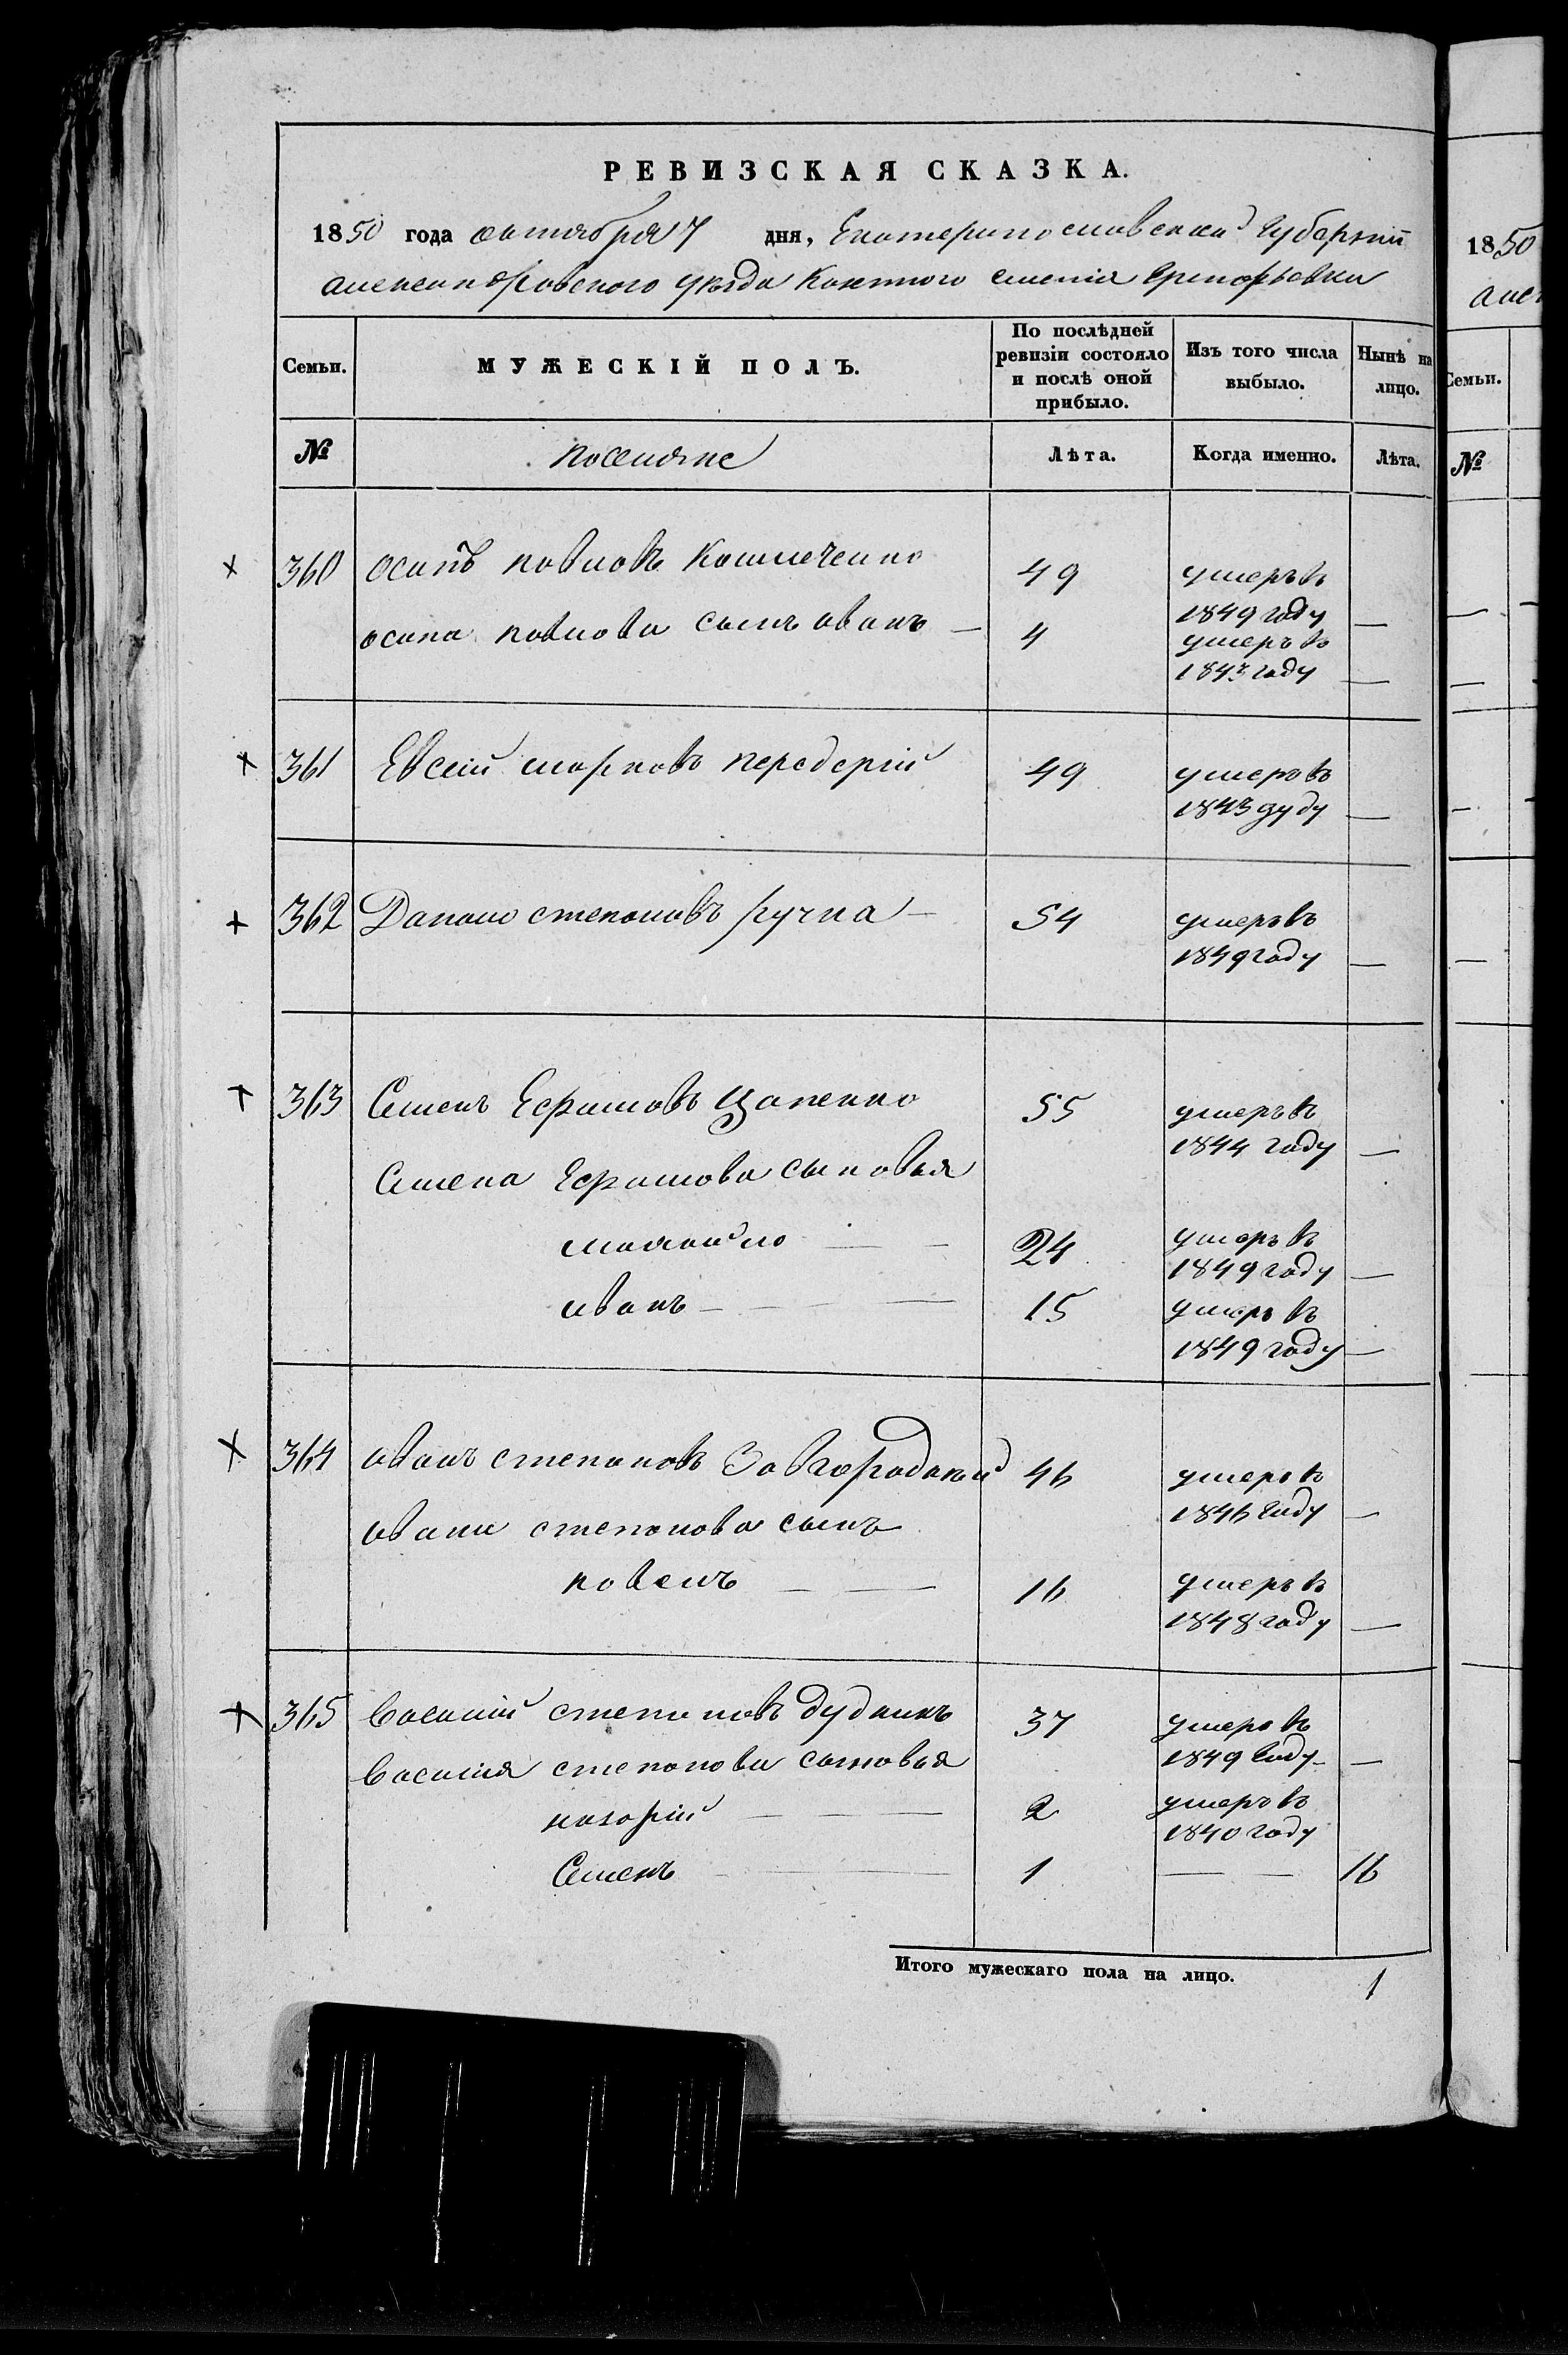 РЕВИЗСКАЯ СКАЗКА.
1850 года октября 7 дня, Екатеринославской Губернии
Александровского уезда Григорьевки
Семьи. МУЖЕСКІЙ ПОЛЪ. По послѣдней ревизіи состояло и послѣ оной прибыло. Изъ того числа выбыло. Нынѣ на лицо.
№ поселяне Лѣта. Когда именно. Лѣта.
360 осипъ павловъ 49 умеръ въ
1849 году —
осипа павлова сынъ иванъ — 4 умеръ въ
1843 году —
361 Евсей марковъ передерій 49 умеръ въ
1843 году —
362 Данило степановъ ручка — 54 умеръ въ
1849 году —
363 Семенъ Ефимовъ Цапенко 55 умеръ въ
1844 году —
Семена Ефимова сыновья
михайло — — 24 умеръ въ
1849 году —
иванъ — — — 15 умеръ въ
1849 году —
364 иванъ степановъ Завгородній 46 умеръ въ
1846 году —
ивана степанова сынъ
павелъ — — 16 умеръ въ
1848 году —
365 Василий степановъ дудникъ 37 умеръ въ
1849 году —
Василия степанова сыновья
назарій — — 2 умеръ въ
1840 году
Семенъ — — 1 — — 16
Итого мужескаго пола на лицо. 1
1850
Семьи.
№